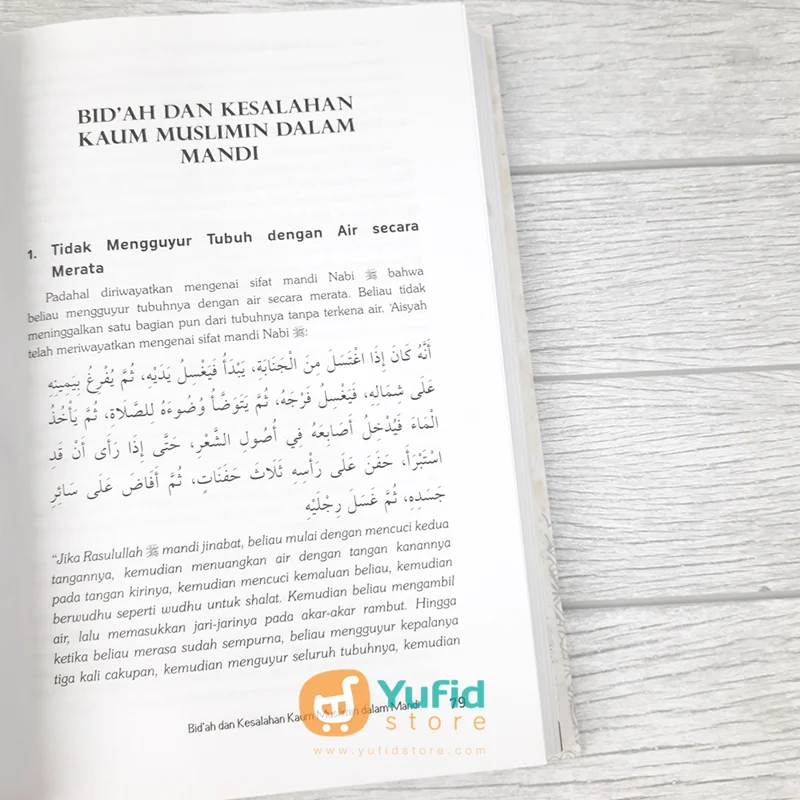 BID'AH DAN KESALAHAN
KAUM MUSLIMIN DALAM
MANDI
1. Tidak Mengguyur Tubuh dengan Air secara
Merata
Padahal diriwayatkan mengenai sifat mandi Nabi ﷺ bahwa
beliau mengguyur tubuhnya dengan air secara merata. Beliau tidak
meninggalkan satu bagian pun dari tubuhnya tanpa terkena air. 'Aisyah
telah meriwayatkan mengenai sifat mandi Nabi ﷺ:
أَنَّهُ كَانَ إِذَا اغْتَسَلَ مِنَ الْجَنَابَةِ، يَبْدَأُ فَيَغْسِلُ يَدَيْهِ، ثُمَّ يُفْرِغُ بِيَمِينِهِ
عَلَى شِمَالِهِ، فَيَغْسِلُ فَرْجَهُ، ثُمَّ يَتَوَضَّأُ وُضُوءَهُ لِلصَّلَاةِ، ثُمَّ يَأْخُذُ
الْمَاءَ فَيُدْخِلُ أَصَابِعَهُ فِي أُصُولِ الشَّعْرِ، حَتَّى إِذَا رَأَى أَنْ قَدِ
اسْتَبْرَأَ، حَفَنَ عَلَى رَأْسِهِ ثَلَاثَ حَفَنَاتٍ، ثُمَّ أَفَاضَ عَلَى سَائِرِ
جَسَدِهِ، ثُمَّ غَسَلَ رِجْلَيْهِ
"Jika Rasulullah ﷺ mandi jinabat, beliau mulai dengan mencuci kedua
tangannya, kemudian menuangkan air dengan tangan kanannya
pada tangan kirinya, kemudian mencuci kemaluan beliau, kemudian
berwudhu seperti wudhu untuk shalat. Kemudian beliau mengambil
air, lalu memasukkan jari-jarinya pada akar-akar rambut. Hingga
ketika beliau merasa sudah sempurna, beliau mengguyur kepalanya
tiga kali cakupan, kemudian menguyur seluruh tubuhnya, kemudian
Bid'ah dan Kesalahan Kaum Muslimin dalam Mandi 79
Yufid
store
www.yufidstore.com